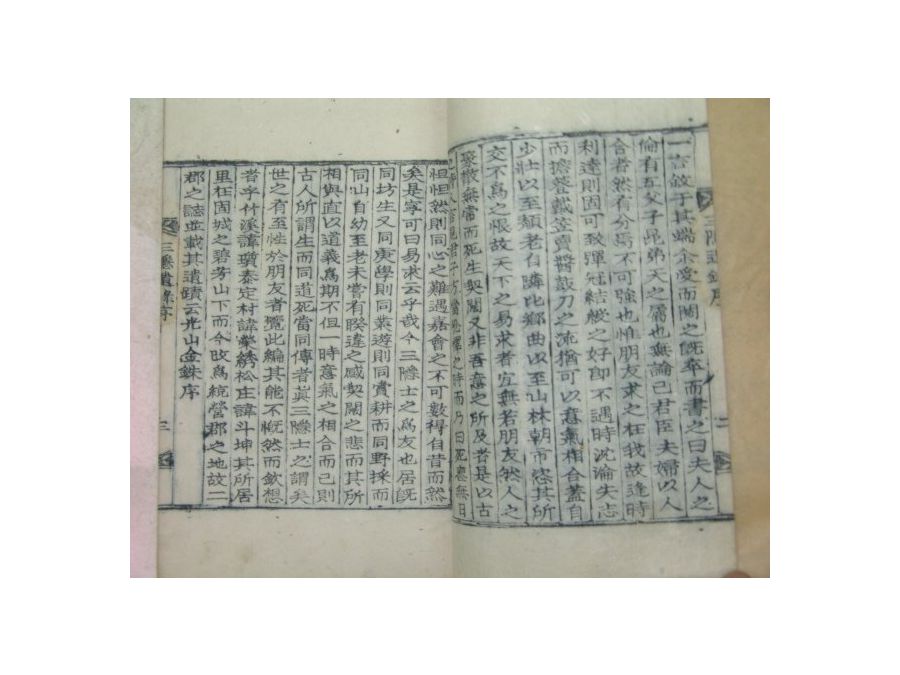 三隱遺錄序
二
一言敘于其端余愛而閱之旣卒而書之曰夫人之
倫有五父子昆弟天之屬也無論已君臣夫婦以人
合者然有分焉不可強也惟朋友求之在我故逢時
利達則固可致彈冠結綬之好卽不遇時沉淪失志
而擔簦戴笠賣醬鼓刀之流猶可以意氣相合蓋自
少壯以至頹老自隣比鄉曲以至山林朝市恣其所
交不爲之恨故天下之易求者宜無若朋友然人之
聚散無常而死生契闊又非吾意之所及者是以古
之時而乃曰死喪無日
怛怛然則同心之難遇嘉會之不可數得自昔而然
矣是寧可曰易求云乎哉今三隱士之爲友也居旣
同坊生又同庚學則同業遊則同賞耕而同野採而
同山自幼至老未嘗有睽違之感契闊之悲而其所
相與直以道義爲期不但一時意氣之相合而已則
古人所謂生而同道死當同傳者眞三隱士之謂矣
世之有至性於朋友者覽此編其能不慨然而欽想
者乎竹溪諱瓊泰定村諱榮綉松庄諱斗坤其所居
里在固城之碧芳山下而今改爲統營郡之地故二
郡之誌並載其遺蹟云光山金銖序
三隱遺錄序
三